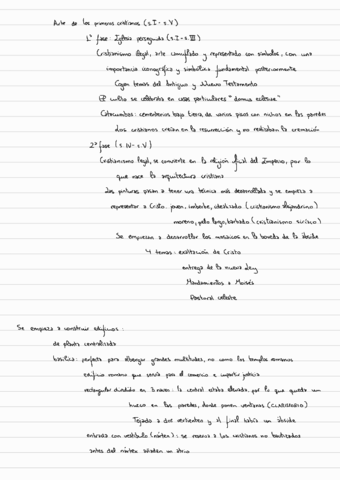 Arte de los primeros cristianos (s.I - s.V)
1ª fase: Iglesia perseguida (s.I - s.III)
Cristianismo ilegal, arte camuflado y representado con símbolos, con una
importancia iconográfica y simbólica fundamental posteriormente
Cogen temas del Antiguo y Nuevo Testamento
El culto se celebraba en casas particulares "domus ecclesiae"
Catacumbas: cementerios bajo tierra de varios pisos con nichos en las paredes
Los cristianos creían en la resurrección y no realizaban la cremación
2ª fase (s.IV - s.V)
Cristianismo legal, se convierte en la religión oficial del Imperio, por lo
que nace la arquitectura cristiana
Las pinturas pasan a tener una técnica más desarrollada y se empieza a
representar a Cristo joven, imberbe, idealizado (cristianismo alejandrino)
moreno, pelo largo, barbado (cristianismo siríaco)
Se empiezan a desarrollar los mosaicos en la bóveda de la ábside
4 temas: exaltación de Cristo
entrega de la nueva Ley
Mandamientos a Moisés
Pastoral celeste
Se empieza a construir edificios:
de planta centralizada
basílica: perfecta para albergar grandes multitudes, no como los templos romanos
edificio romano que servía para el comercio e impartir justicia
rectangular dividido en 3 naves: la central estaba elevada, por lo que queda un
hueco en las paredes, donde ponen ventanas (CLARISTORIO)
Tejado a dos vertientes y al final había un ábside
entrada con vestíbulo (nártex): se reserva a los cristianos no bautizados
antes del nártex añadían un atrio